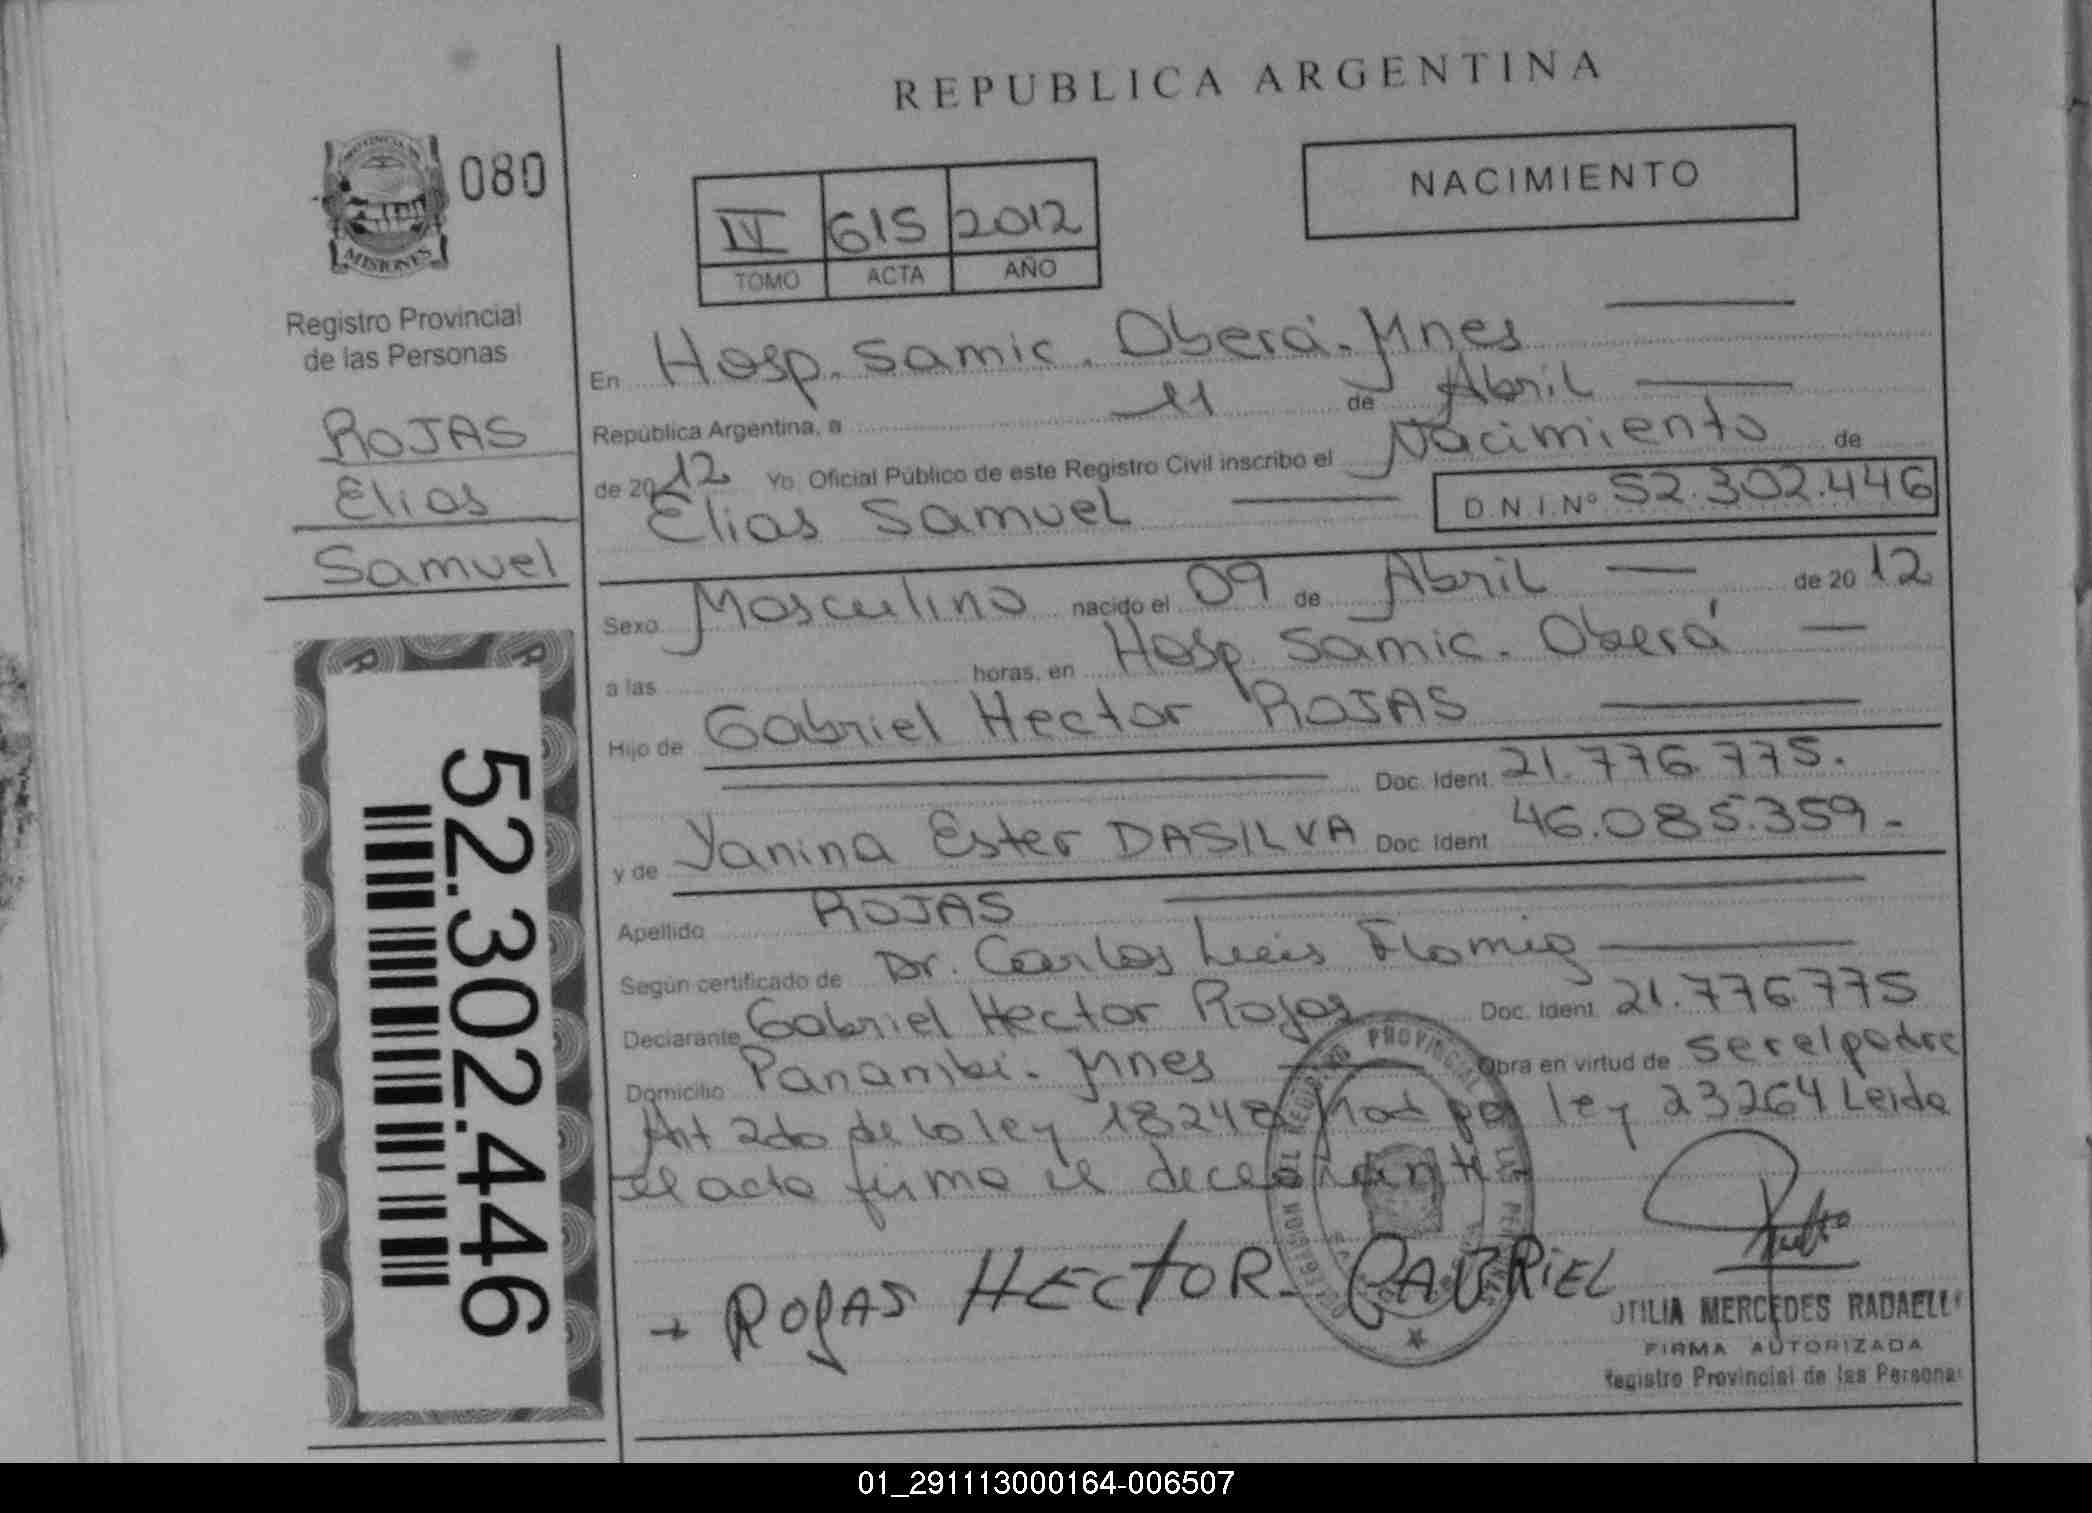 REPUBLICA ARGENTINA
PROVINCIA DE
MISIONES
080
Registro Provincial
de las Personas
ROJAS
Elias
Samuel
52.302.446
NACIMIENTO
IV 615 2012
TOMO ACTA AÑO
En Hosp. Samic. Oberá. Mnes
República Argentina, a 11 de Abril
de 2012 Yo Oficial Público de este Registro Civil inscribo el Nacimiento de
Elias Samuel D.N.I.Nº 52.302.446
Sexo Masculino nacido el 09 de Abril de 2012
a las horas, en Hosp. Samic. Oberá
Hijo de Gabriel Hector ROJAS
Doc. Ident. 21.776.775.
y de Yanina Ester DASILVA Doc. Ident 46.085.359.-
Apellido ROJAS
Según certificado de Dr. Carlos Luis Flomig
Declarante Gabriel Hector Rojas Doc. Ident. 21.776.775
Domicilio Panambí. Mnes Obra en virtud de ser el padre
Art 2do de la ley 18248 Mod por ley 23264 Leida
el acta firma el declarante
+ ROJAS HECTOR GABRIEL
OTILIA MERCEDES RADAELLI
FIRMA AUTORIZADA
Registro Provincial de las Personas
01_291113000164-006507